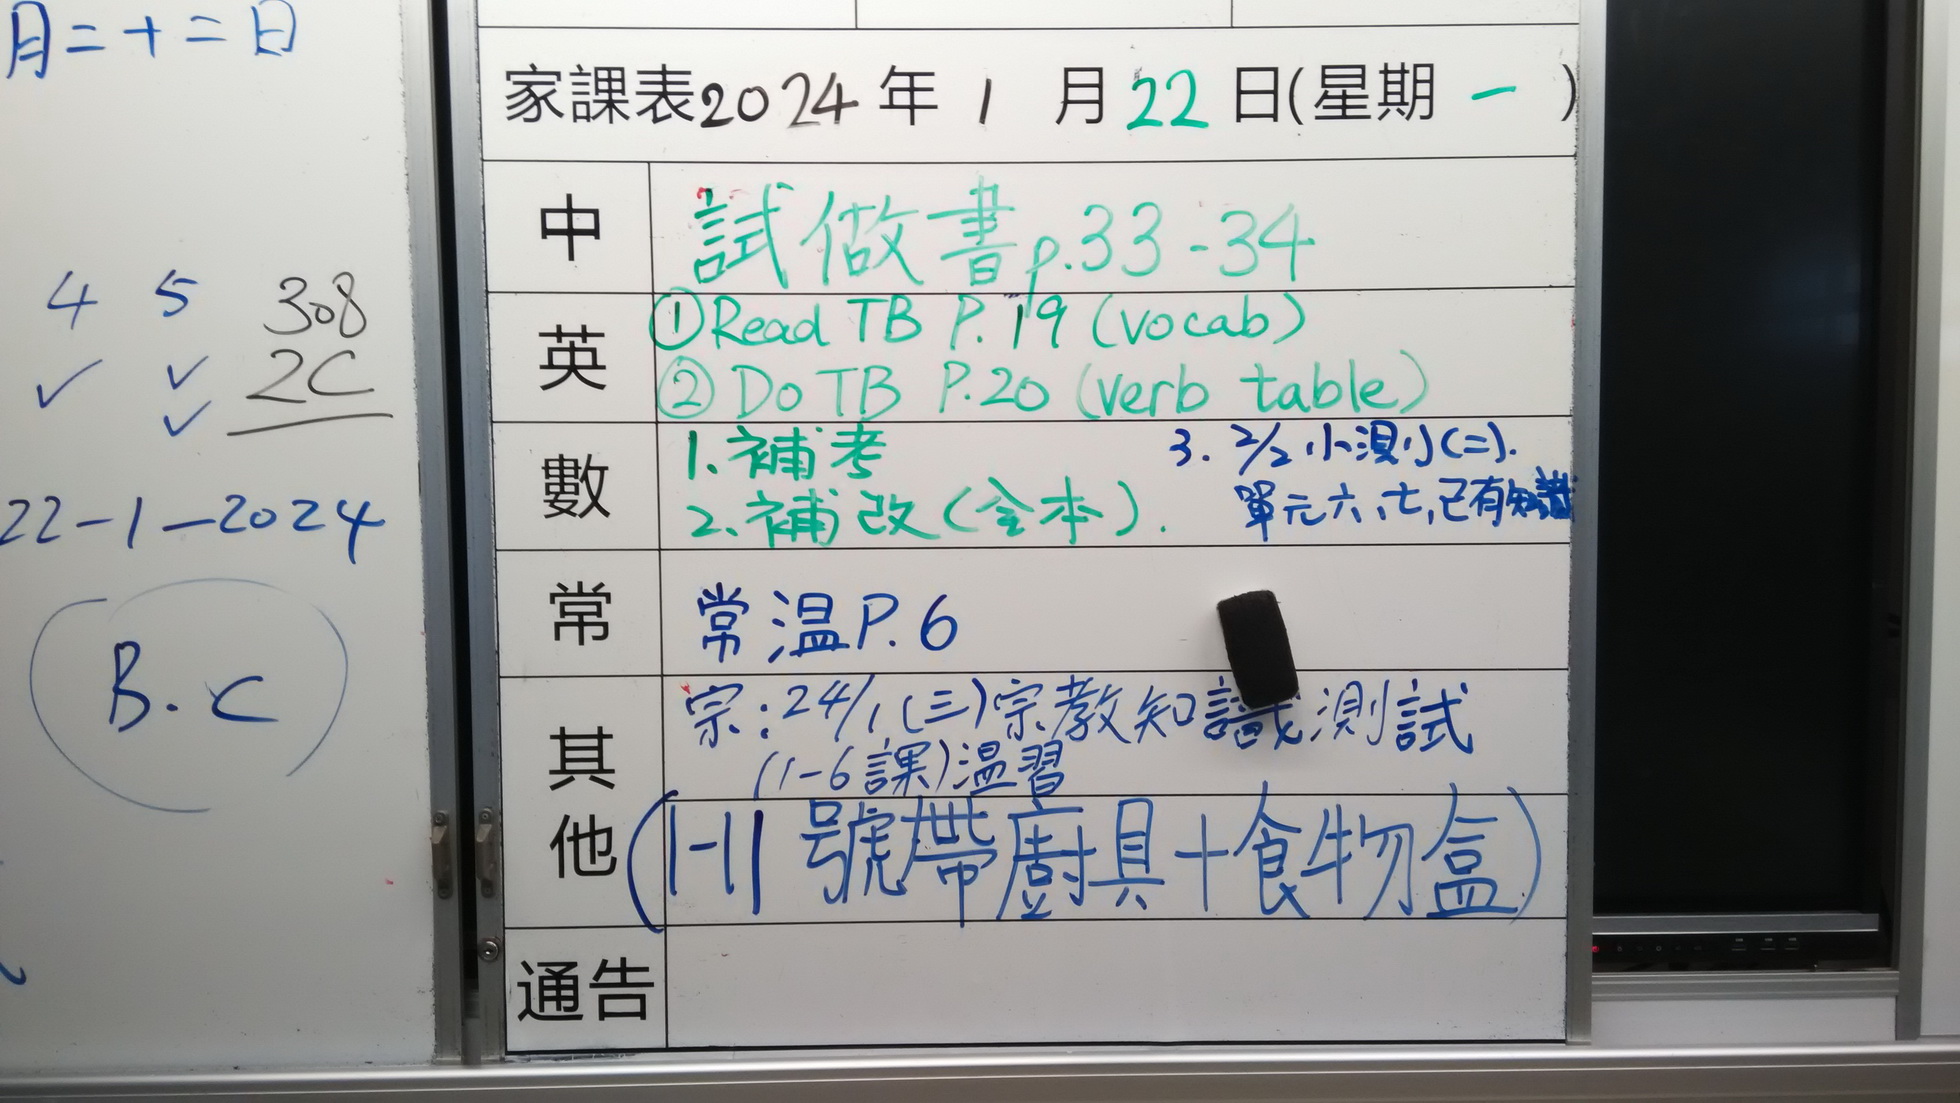 月二十二日
4 5 308
2C
22-1-2024
B.C
家課表2024年1月22日(星期一)
中
試做書p.33-34
英
①Read TB P.19 (vocab)
②Do TB P.20 (verb table)
數
1.補考
2.補改(全本).
3. 2/2 小測小(二).
單元六、七,已有知識
常
常溫P.6
其他
宗:24/1(三)宗教知識測試
(1-6課)溫習
(1-11號帶廚具+食物盒)
通告